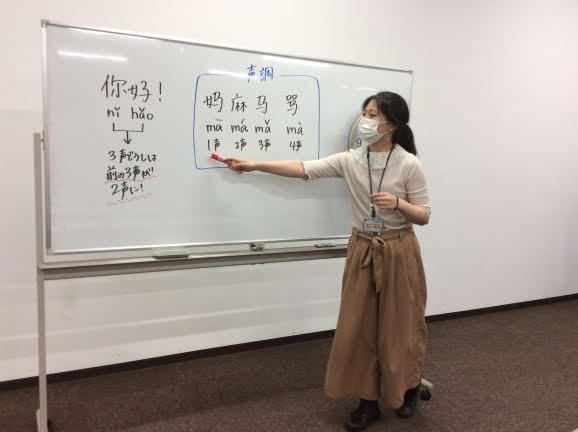 你好!
nǐ hǎo
3声どうしは
前の3声が
2声に!
声調
妈 麻 马 骂
mā má mǎ mà
1声 2声 3声 4声